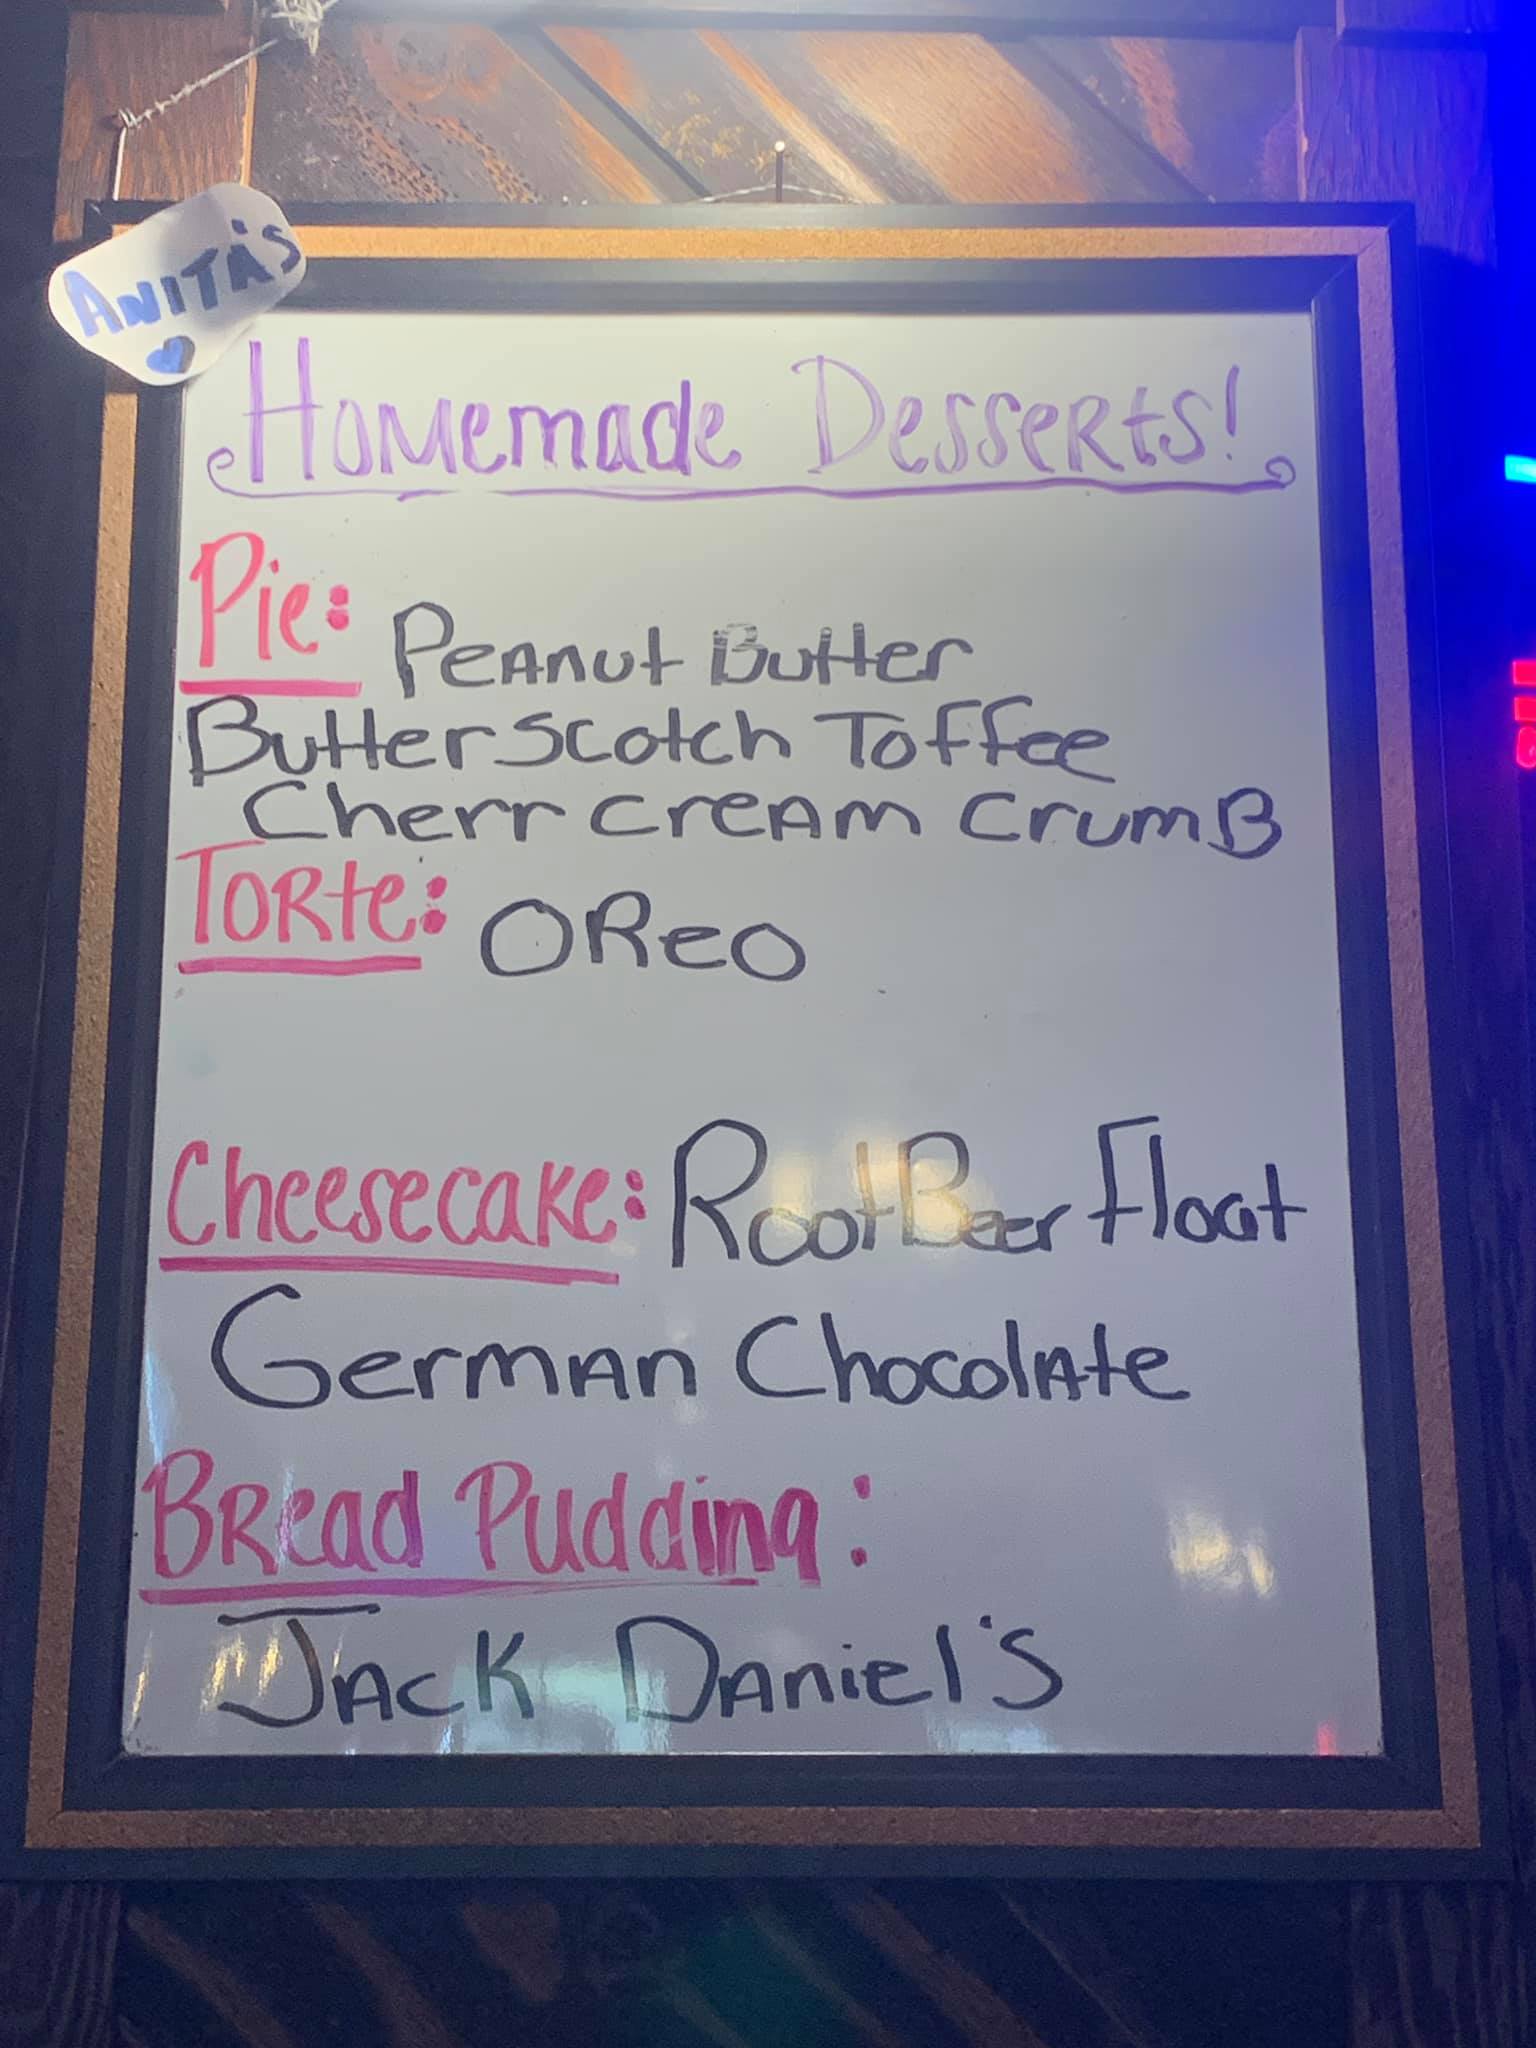 ANITA'S
Homemade Desserts!
Pie: Peanut Butter
Butterscotch Toffee
Cherr cream crumb
Torte: Oreo
Cheesecake: Root Beer Float
German Chocolate
Bread Pudding:
Jack Daniel's